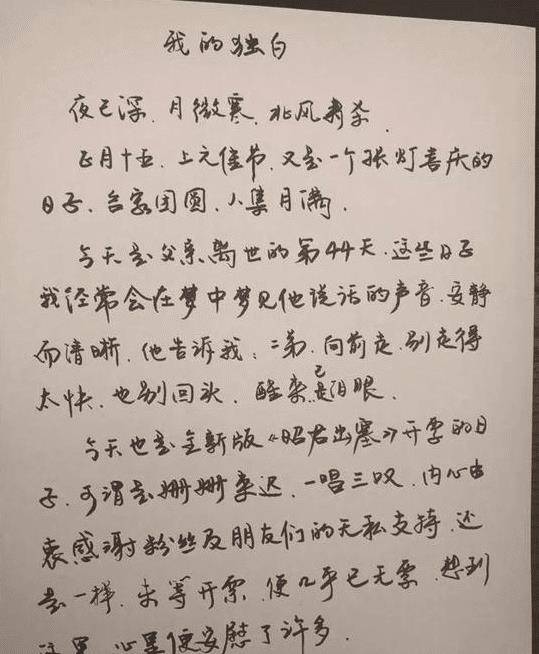 我的独白
夜已深、月微寒、北风肃杀
正月十五、上元佳节、又是一个张灯喜庆的
日子、合家团圆、人集月满、
今天是父亲离世的第44天、这些日子
我经常会在梦中梦见他说话的声音、安静
而清晰、他告诉我：二弟、向前走、别走得
太快、也别回头、醒来已是泪眼、
今天也是全新版《昭君出塞》开票的日
子、可谓是姗姗来迟、一唱三叹、内心由
衷感谢粉丝及朋友们的无私支持、还
是一样、未等开票、便几乎已无票、想到
这里、心里便安慰了许多、